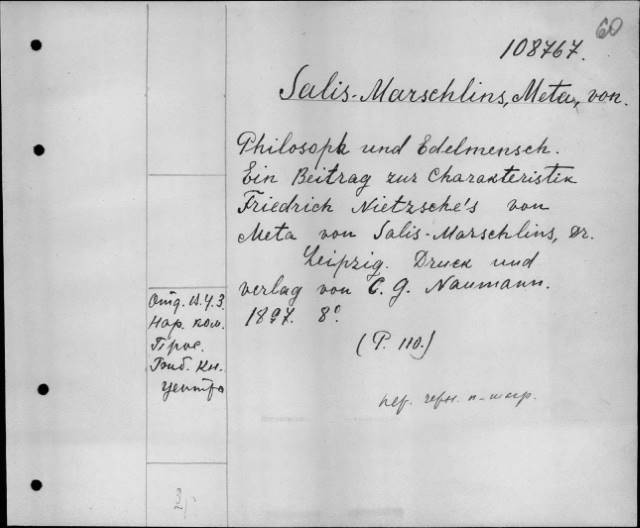 60
108767.
Salis-Marschlins, Meta, von.
Philosoph und Edelmensch.
Ein Beitrag zur Charakteristik
Friedrich Nietzsche's von
Meta von Salis-Marschlins, Dr.
Leipzig. Druck und
verlag von C. G. Naumann.
1897. 8°.
(P. 110.)
Отд. И.Ч.З.
Нар. ком.
Прос.
Библ. Кн.
Центр
пер. черн. п-
3/